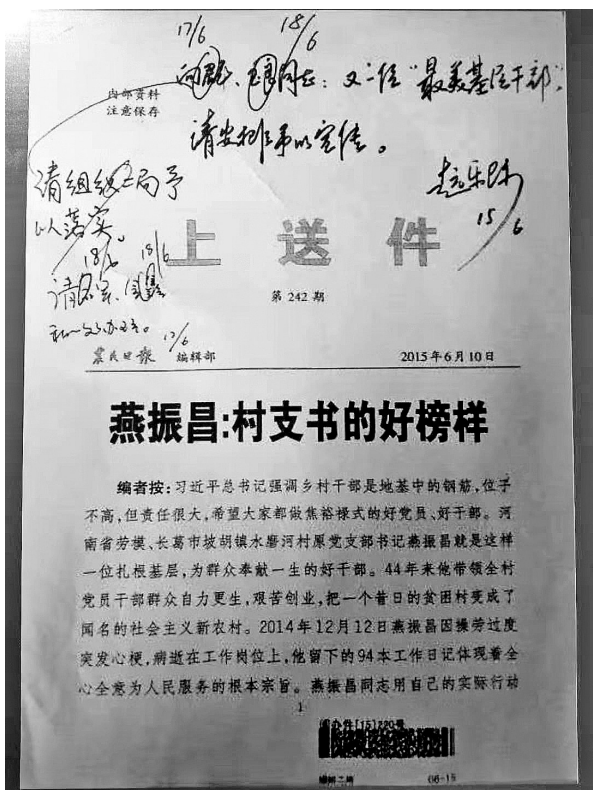 17/6
18/6
内部资料
注意保存
同志：又一位“最美基层干部”。
请安排予以宣传。
请组织二局予
以落实。
赵乐际
15/6
18/6
18/6
上送件
第 242 期
17/6
农民日报 编辑部
2015年6月10日
燕振昌:村支书的好榜样
编者按:习近平总书记强调乡村干部是地基中的钢筋,位子
不高,但责任很大,希望大家都做焦裕禄式的好党员、好干部。河
南省劳模、长葛市坡胡镇水磨河村原党支部书记燕振昌就是这样
一位扎根基层,为群众奉献一生的好干部。44年来他带领全村
党员干部群众自力更生,艰苦创业,把一个昔日的贫困村变成了
闻名的社会主义新农村。2014年12月12日燕振昌因操劳过度
突发心梗,病逝在工作岗位上,他留下的94本工作日记体现着全
心全意为人民服务的根本宗旨。燕振昌同志用自己的实际行动
1
办件[15]220号
06-15